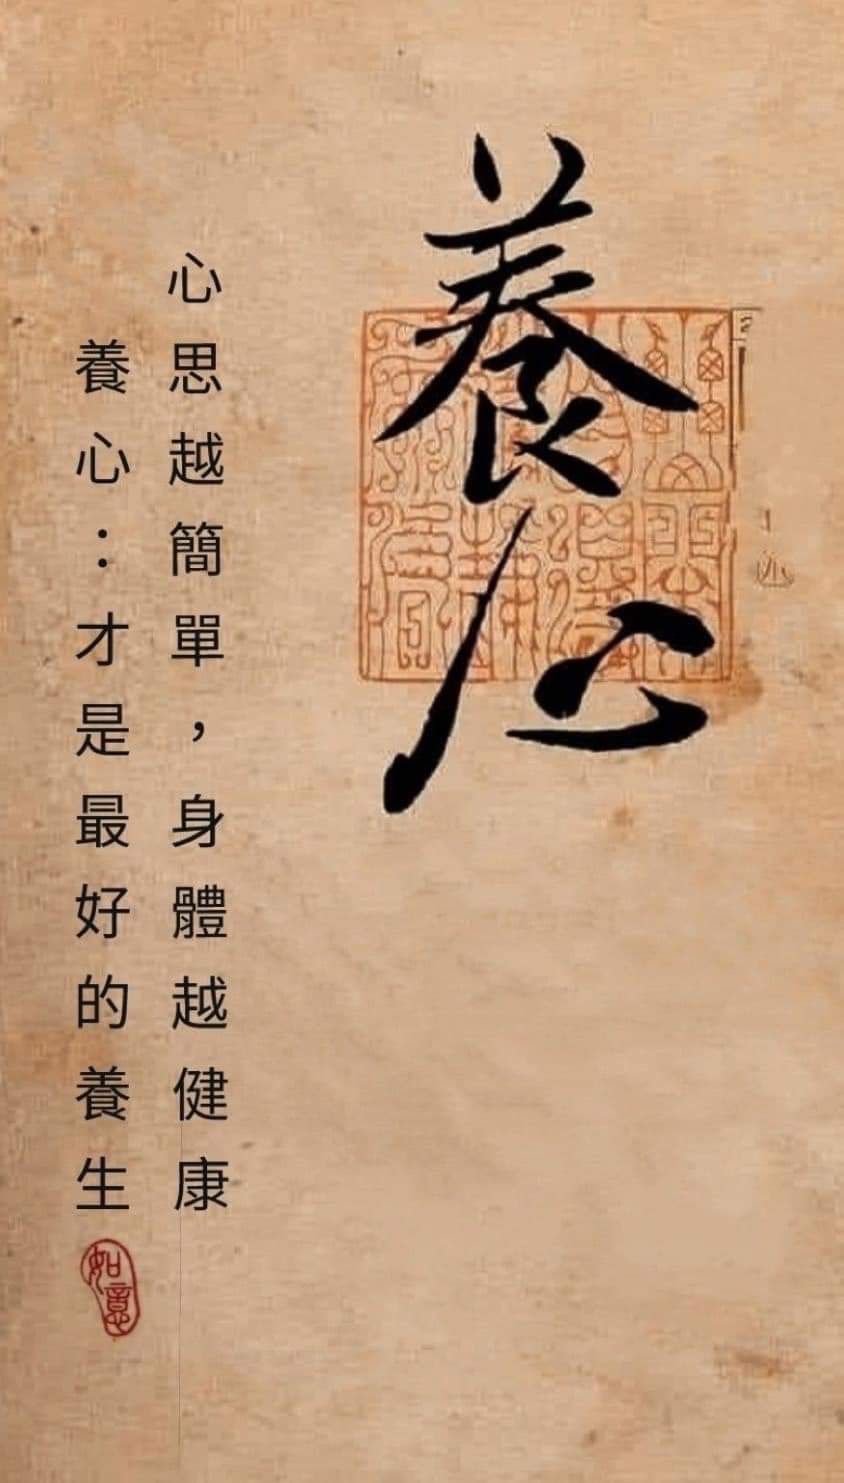 養心
心思越簡單，身體越健康
養心：才是最好的養生
如意